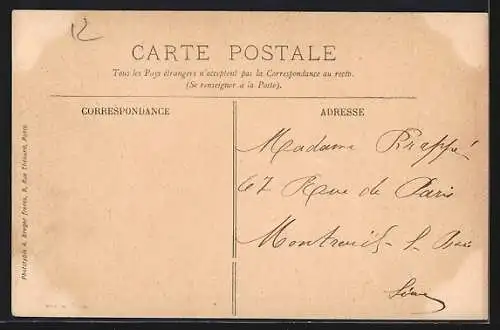 12
CARTE POSTALE
Tous les Pays étrangers n'acceptent pas la Correspondance au recto.
(Se renseigner à la Poste).
CORRESPONDANCE
ADRESSE
Madame Krappé
67 Rue de Paris
Montreuil-s-Bois
Seine
Phototypie A. Breger Frères, 9, Rue Thénard, Paris